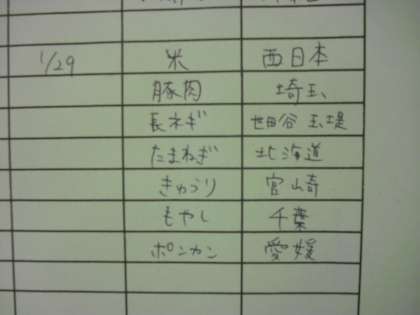 1/29 米 西日本
豚肉 埼玉
長ネギ 世田谷 玉堤
たまねぎ 北海道
きゅうり 宮崎
もやし 千葉
ポンカン 愛媛